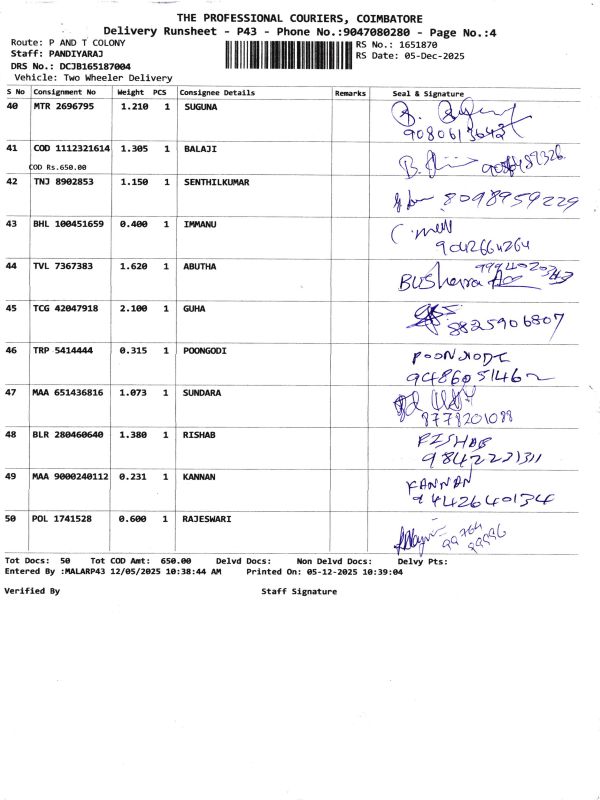 THE PROFESSIONAL COURIERS, COIMBATORE
Delivery Runsheet - P43 - Phone No.:9047080280 - Page No.:4
Route: P AND T COLONY
RS No.: 1651870
Staff: PANDIYARAJ
RS Date: 05-Dec-2025
DRS No.: DCJB165187004
Vehicle: Two Wheeler Delivery
S No Consignment No Weight PCS Consignee Details Remarks Seal & Signature
40 MTR 2696795 1.210 1 SUGUNA
41 COD 1112321614 1.305 1 BALAJI
COD Rs.650.00
42 TNJ 8902853 1.150 1 SENTHILKUMAR 8098959229
43 BHL 100451659 0.400 1 IMMANU
9042664264
44 TVL 7367383 1.620 1 ABUTHA
45 TCG 42047918 2.100 1 GUHA
8825906807
46 TRP 5414444 0.315 1 POONGODI
9486051462
47 MAA 651436816 1.073 1 SUNDARA
8778201088
48 BLR 280460640 1.380 1 RISHAB RISHAB
9842221311
49 MAA 9000240112 0.231 1 KANNAN KANNAN
9442640134
50 POL 1741528 0.600 1 RAJESWARI
Tot Docs: 50 Tot COD Amt: 650.00 Delvd Docs: Non Delvd Docs: Delvy Pts:
Entered By :MALARP43 12/05/2025 10:38:44 AM Printed On: 05-12-2025 10:39:04
Verified By Staff Signature